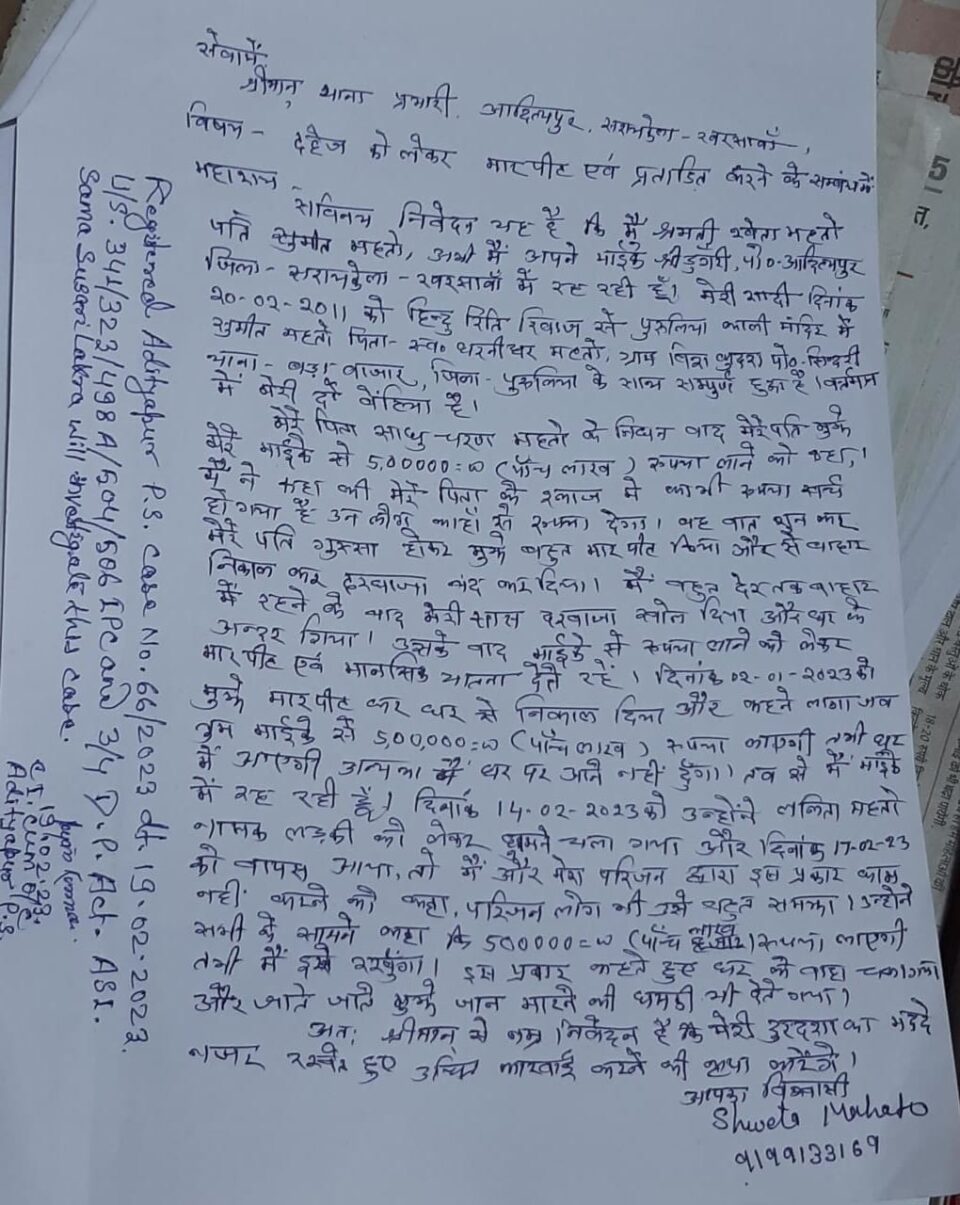 सेवामें,
श्रीमान् थाना प्रभारी, आदित्यपुर, सरायकेला - खरसावाँ,
विषय - दहेज को लेकर मारपीट एवं प्रताड़ित करने के सम्बंध में
महाशय,
सविनय निवेदन यह है कि मैं श्रमती श्वेता महतो
पति सुमीत महतो, अभी मैं अपने माईके श्रीडुंगरी, पो०-आदित्यपुर
जिला- सरायकेला - खरसावाँ में रह रही हूँ। मेरी शादी दिनांक
20-02-2011 को हिन्दु रिति रिवाज से पुरुलिया काली मंदिर में
सुमीत महतो पिता- स्व० धरनीधर महतो, ग्राम पो०-सिन्दरी
थाना- बड़ा बाजार, जिला- पुरुलिया के साथ सम्पुर्ण हुआ है। वर्तमान
में मेरी दो बेटिया है।
मेरे पिता साधु-चरण महतो के निधन बाद मेरे पति मुझे
मेरे माईके से 5,00000=00 (पाँच लाख) रूपया लाने को कहा,।
मैं ने कहा की मेरे पिता के इलाज में काफी रूपया खर्च
हो गया है उन लोग काहाँ से रूपया देगा। यह बात सुन कर
मेरे पति गुस्सा होकर मुझे बहुत मारपीट किया और से बाहार
निकाल कर दरवाजा बंद कर दिया। मैं बहुत देर तक बाहार
में रहने के बाद मेरी सास दरवाजा खोल दिया और घर के
अन्दर गिया। उसके बाद माईके से रूपया लाने को लेकर
मारपीट एवं मानसिक यातना देते रहें। दिनांक 02-01-2023 को
मुझे मारपीट कर घर से निकाल दिया और कहने लगा जब
तुम माईके से 5,00,000=00 (पाँच लाख) रूपया लाएगी तभी घर
में आएगी अन्यथा मैं घर पर आने नहीं दुँगा। तब से मैं माईके
में रह रही हूँ। दिनांक 14-02-2023 को उन्होंने ललिता महतो
नामक लड़की को लेकर घुमने चला गया और दिनांक 17-02-23
को वापस आया, तो मैं और मेरा परिजन द्वारा इस प्रकार काम
नहीं करने को कहा, परिजन लोग भी उसे बहुत समझा। उन्होने
सभी के सामने कहा कि 500000=00 (पाँच लाख) रूपया लाएगी
तभी मैं इसे रखुंगा। इस प्रकार कहते हुए घर से बाहा चलागया
और जाते जाते मुझे जान मारने की धमकी भी देते गया।
अतः श्रीमान् से नम्र निवेदन है कि मेरी दुरदशा का मद्दे
नजर रखते हुए उचित कारवाई करने की कृपा करेंगे।
आपका विश्वासी
Shweta Mahato
9199133169
Registered Adityapur P.S. Case No. 66/2023 dt. 19.02.2023.
U/S. 341/323/498A/504/506 IPC and 3/4 D.P. Act. ASI.
Sama Susari Lakra will investigate this case.
19.02.23.
Adityapur P.S.